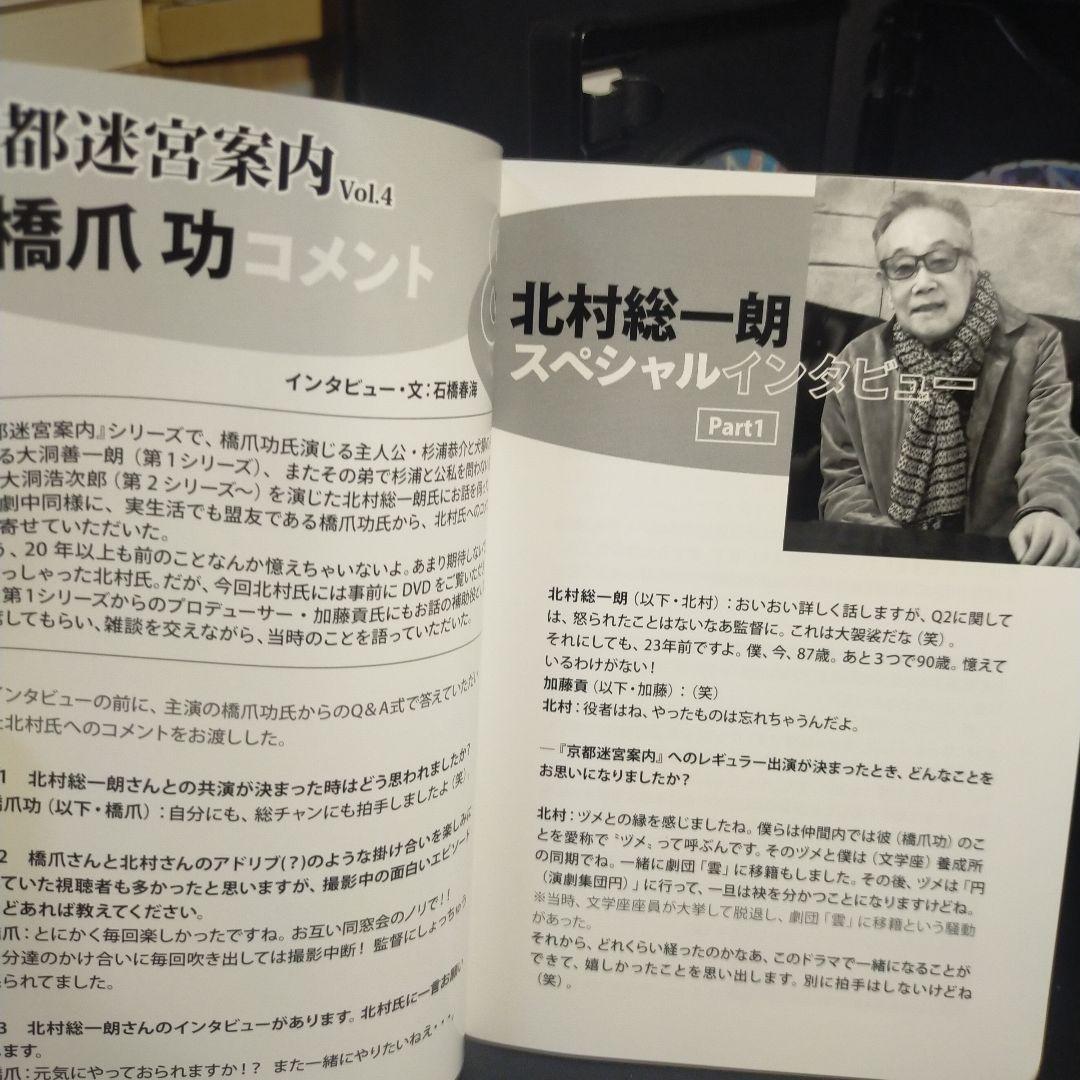 都迷宮案内 Vol.4
橋爪 功コメント
インタビュー・文：石橋春海
都迷宮案内』シリーズで、橋爪功氏演じる主人公・杉浦恭介と犬猿の
る大洞善一朗（第1シリーズ）、またその弟で杉浦と公私を問わない
大洞浩次郎（第２シリーズ〜）を演じた北村総一朗氏にお話を
劇中同様に、実生活でも盟友である橋爪功氏から、北村氏への
寄せていただいた。
う、20年以上も前のことなんか憶えちゃいないよ。あまり期待しない
っしゃった北村氏。だが、今回北村氏には事前にDVDをご覧いただ
第1シリーズからのプロデューサー・加藤貢氏にもお話の補助役
席してもらい、雑談を交えながら、当時のことを語っていただいた。
インタビューの前に、主演の橋爪功氏からのQ&A式で答えていただい
北村氏へのコメントをお渡しした。
1 北村総一朗さんとの共演が決まった時はどう思われましたか？
橋爪功（以下・橋爪）：自分にも、総チャンにも拍手しましたよ（笑）。
2 橋爪さんと北村さんのアドリブ(？)のような掛け合いを楽しみに
ていた視聴者も多かったと思いますが、撮影中の面白いエピソード
どあれば教えてください。
爪：とにかく毎回楽しかったですね。お互い同窓会のノリで！！
分達のかけ合いに毎回吹き出しては撮影中断！監督にしょっちゅう
られてました。
3 北村総一朗さんのインタビューがあります。北村氏に一言お願い
ます。
爪：元気にやっておられますか！？ また一緒にやりたいねえ・・・。
北村総一朗
スペシャルインタビュー
Part1
北村総一朗（以下・北村）：おいおい詳しく話しますが、Q2に関して
は、怒られたことはないなあ監督に。これは大袈裟だな（笑）。
それにしても、23年前ですよ。僕、今、87歳。あと３つで90歳。憶えて
いるわけがない！
加藤貢（以下・加藤）：（笑）
北村：役者はね、やったものは忘れちゃうんだよ。
―『京都迷宮案内』へのレギュラー出演が決まったとき、どんなことを
お思いになりましたか？
北村：ヅメとの縁を感じましたね。僕らは仲間内では彼（橋爪功）のこ
とを愛称で〝ヅメ〟って呼ぶんです。そのヅメと僕は（文学座）養成所
の同期でね。一緒に劇団「雲」に移籍もしました。その後、ヅメは「円
（演劇集団円）」に行って、一旦は袂を分かつことになりますけどね。
※当時、文学座座員が大挙して脱退し、劇団「雲」に移籍という騒動
があった。
それから、どれくらい経ったのかなあ、このドラマで一緒になることが
できて、嬉しかったことを思い出します。別に拍手はしないけどね
（笑）。